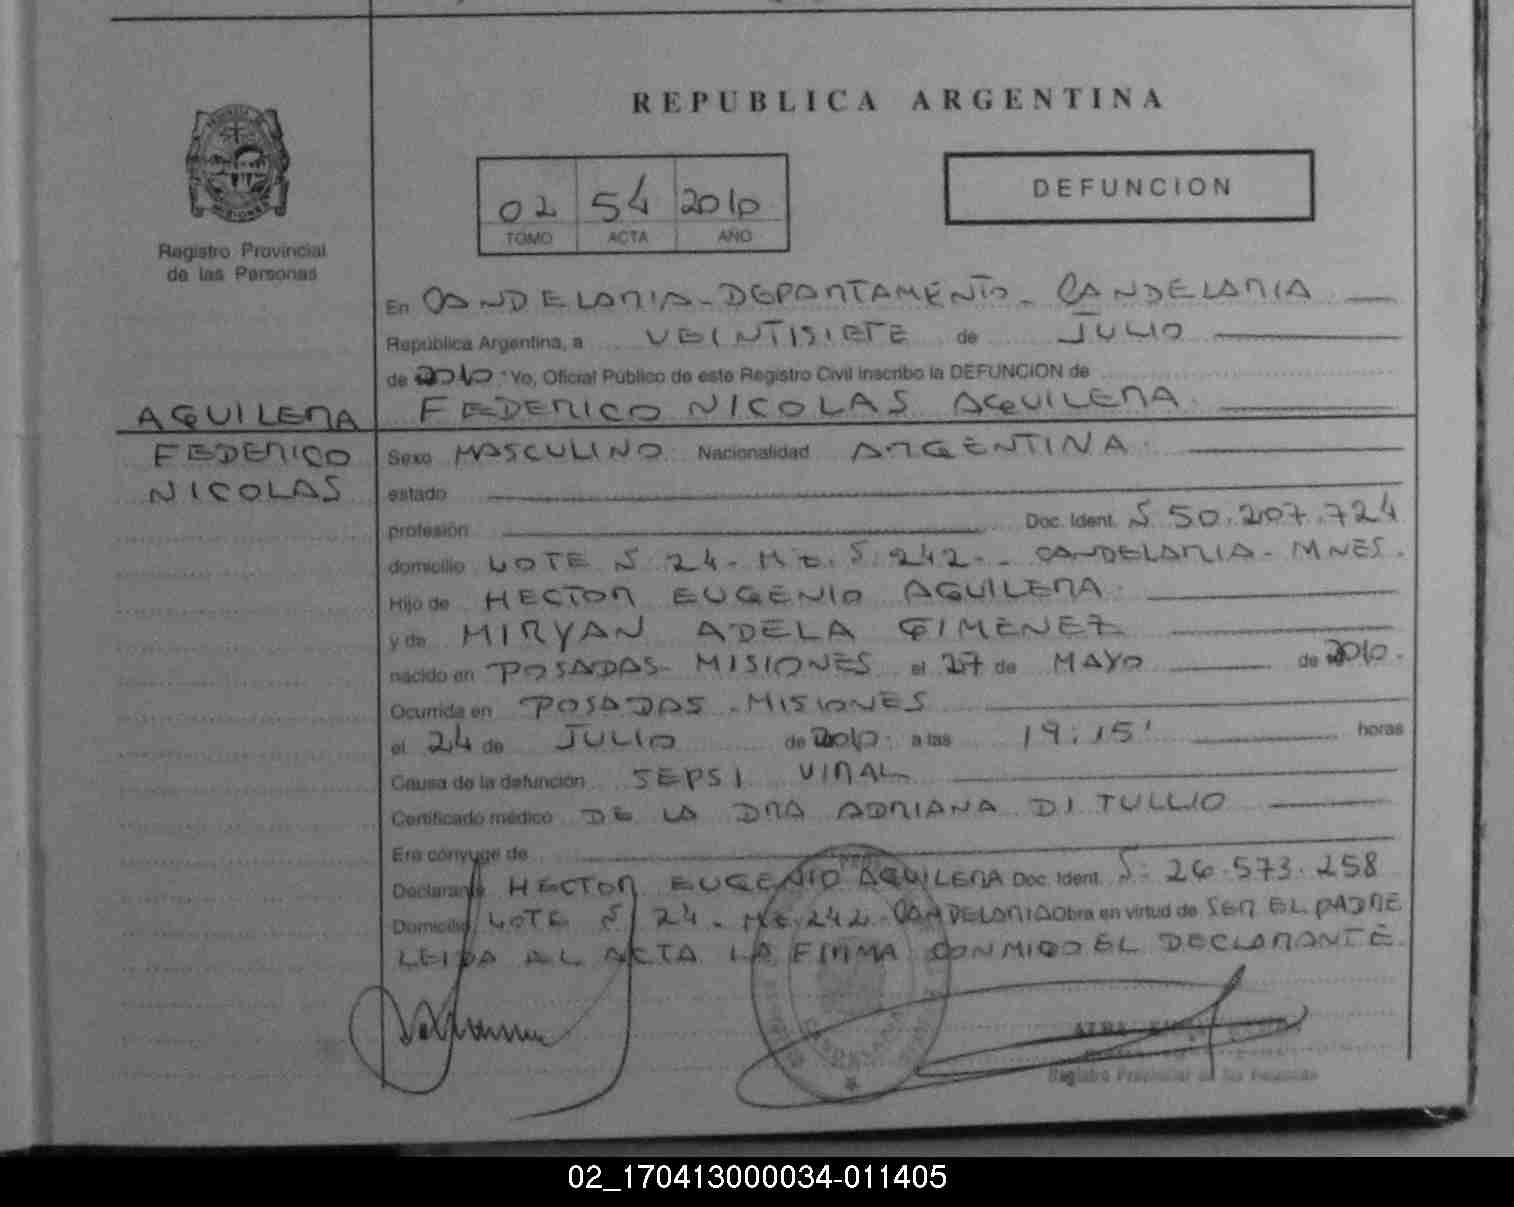 REPUBLICA ARGENTINA
02 54 2010
TOMO ACTA AÑO
DEFUNCION
Registro Provincial
de las Personas
En CANDELARIA - DEPARTAMENTO - CANDELARIA
República Argentina, a VEINTISIETE de JULIO
de 2010 Yo, Oficial Público de este Registro Civil inscribo la DEFUNCION de
AGUILERA
FEDERICO NICOLAS AGUILERA
FEDERICO
NICOLAS
Sexo MASCULINO Nacionalidad ARGENTINA
estado
profesión Doc. Ident. Nº 50.207.724
domicilio LOTE Nº 24 - Mz. Nº 242 - CANDELARIA - MNES.
Hijo de HECTOR EUGENIO AGUILERA
y de MIRYAN ADELA GIMENEZ
nacido en POSADAS - MISIONES el 27 de MAYO de 2010.
Ocurrida en POSADAS - MISIONES
el 24 de JULIO de 2010 a las 19:15' horas
Causa de la defunción SEPSI VIRAL
Certificado médico DE LA DRA ADRIANA DI TULLIO
Era cónyuge de
Declarante HECTOR EUGENIO AGUILERA Doc. Ident. Nº 26.573.258
Domicilio LOTE Nº 24 - Mz 242 - CANDELARIA Obra en virtud de SER EL PADRE
LEIDA AL ACTA LA FIRMA CONMIGO EL DECLARANTE.
Registro Provincial de las Personas
02_170413000034-011405